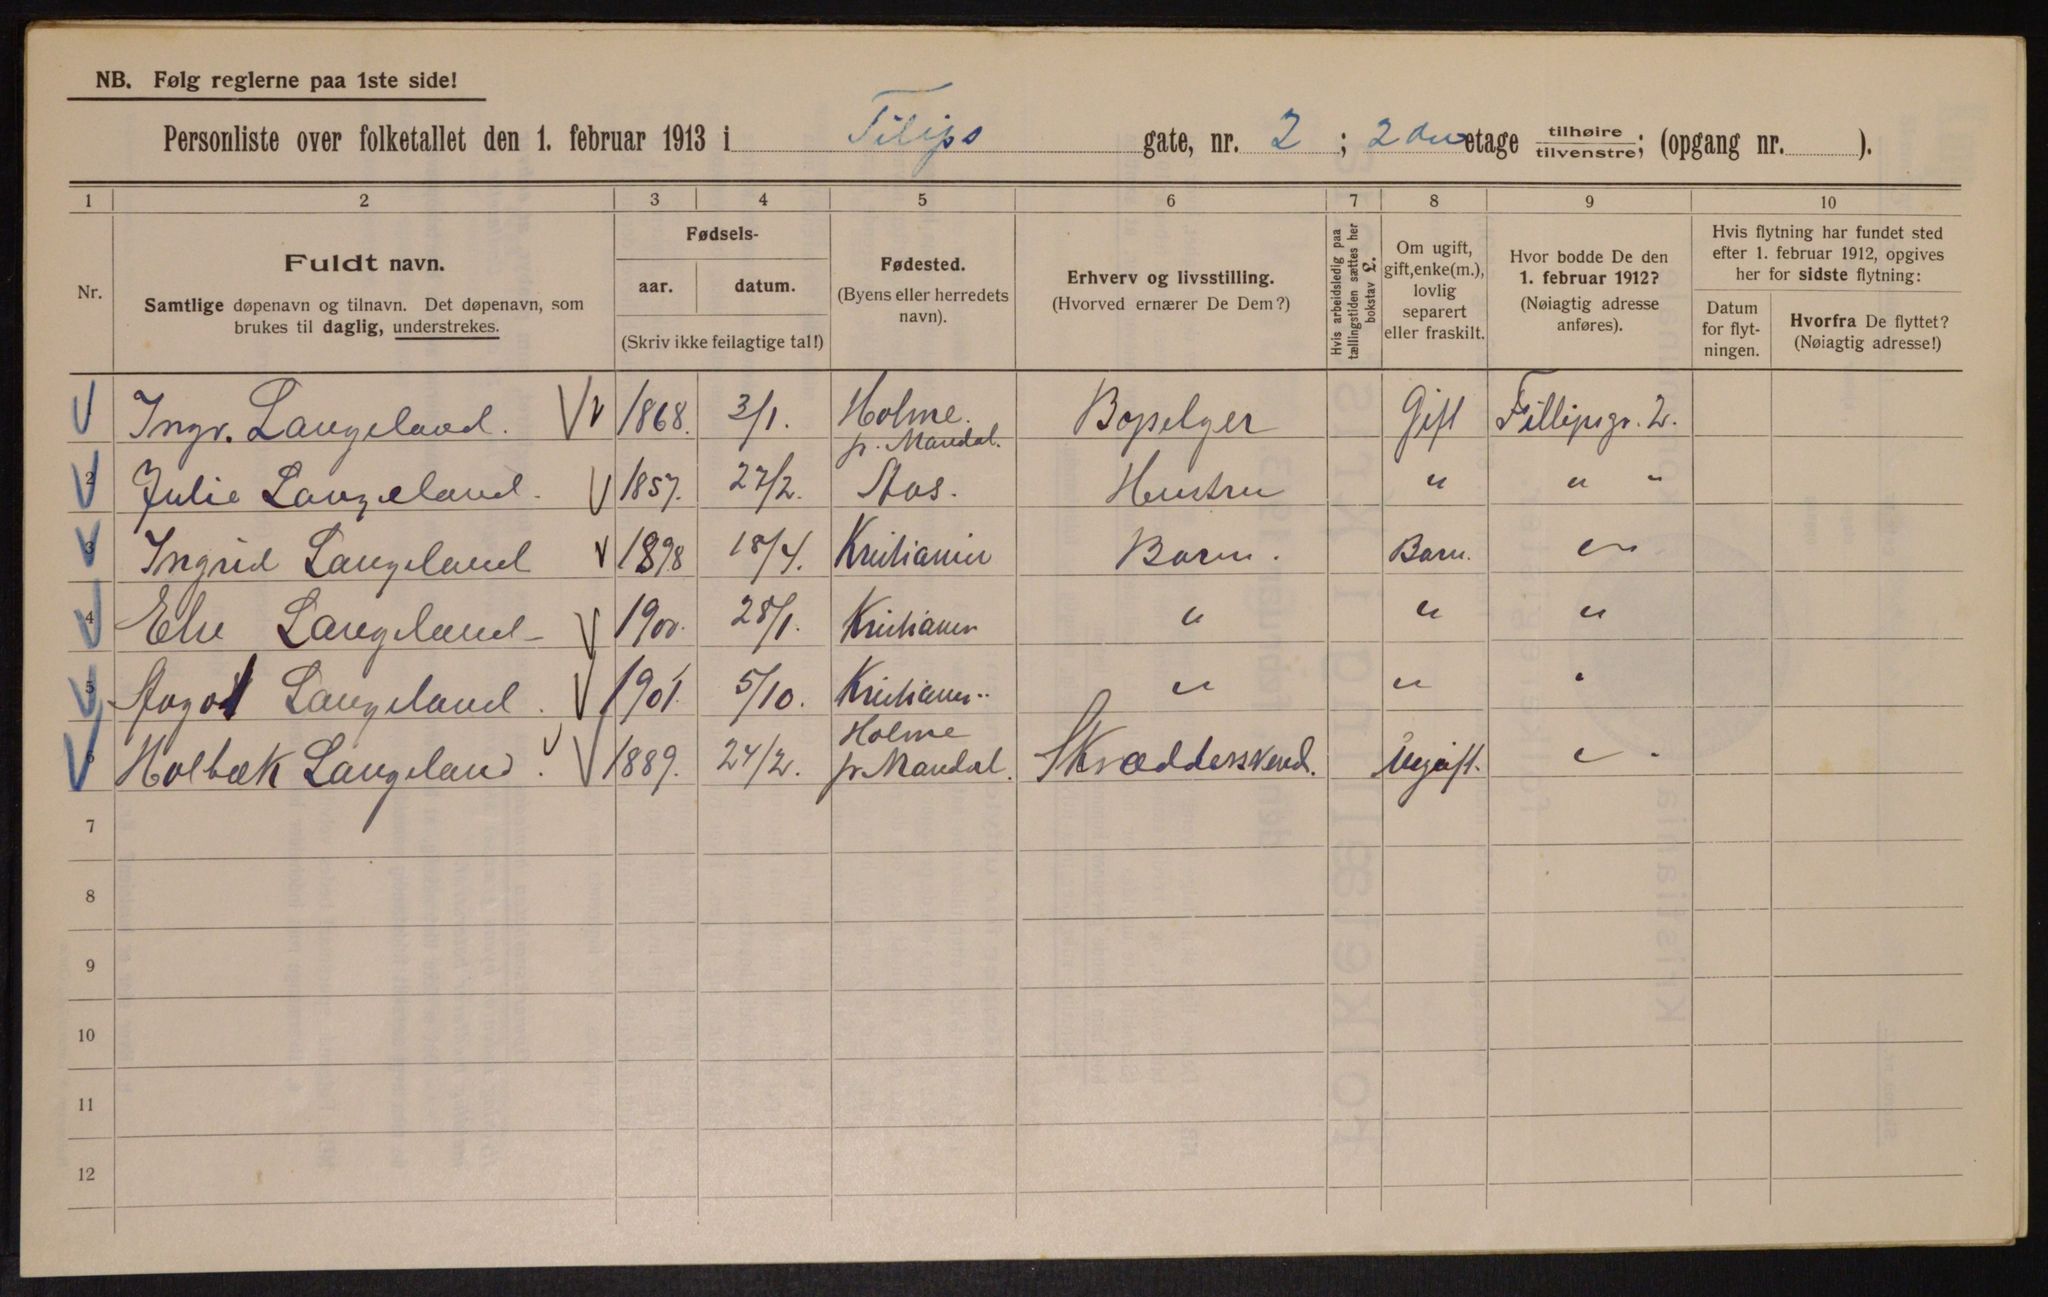 NB. Følg reglerne paa 1ste side!
Personliste over folketallet den 1. februar 1913 i Filips gate, nr. 2 ; 2den etage tilhøire/tilvenstre; (opgang nr. ).
1 2 3 4 5 6 7 8 9 10
Nr.
Fuldt navn.
Samtlige døpenavn og tilnavn. Det døpenavn, som
brukes til daglig, understrekes.
Fødsels-
aar. datum.
(Skriv ikke feilagtige tal!)
Fødested.
(Byens eller herredets
navn).
Erhverv og livsstilling.
(Hvorved ernærer De Dem?)
Hvis arbeidsledig paa
tællingstiden sættes her
bokstav L.
Om ugift,
gift, enke(m.),
lovlig
separert
eller fraskilt.
Hvor bodde De den
1. februar 1912?
(Nøiagtig adresse
anføres).
Hvis flytning har fundet sted
efter 1. februar 1912, opgives
her for sidste flytning:
Datum
for flyt-
ningen.
Hvorfra De flyttet?
(Nøiagtig adresse!)
Ingv. Langeland. 1868. 3/1. Holme. pr. Mandal. Gift Fillipsgr. 2.
2 Julie Langeland. 1857. 27/2. Hustru " " "
3 Ingrid Langeland 1898 18/4. Kristiania Barn. Barn. "
4 Else Langeland 1900. 28/1. Kristiania " " "
5 Aagot Langeland. 1901. 5/10. Kristiania " " "
6 Holbæk Langeland. 1889. 24/2. Holme pr. Mandal. Skræddersvend. Ugift. " "
7
8
9
10
11
12